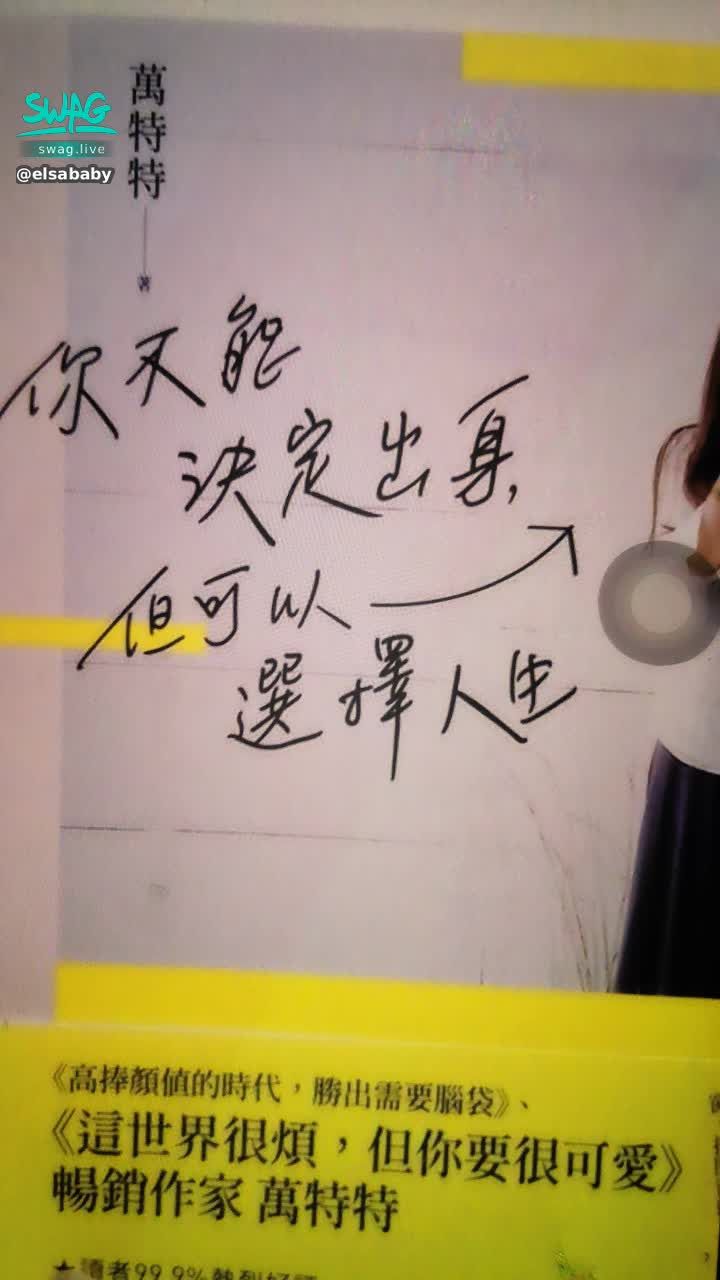 SWAG
swag.live
@elsababy
萬特特
著
你不能
決定出身,
但可以
選擇人生
《高捧顏值的時代,勝出需要腦袋》、
《這世界很煩,但你要很可愛》
暢銷作家 萬特特
★讀者99.9%熱烈好評